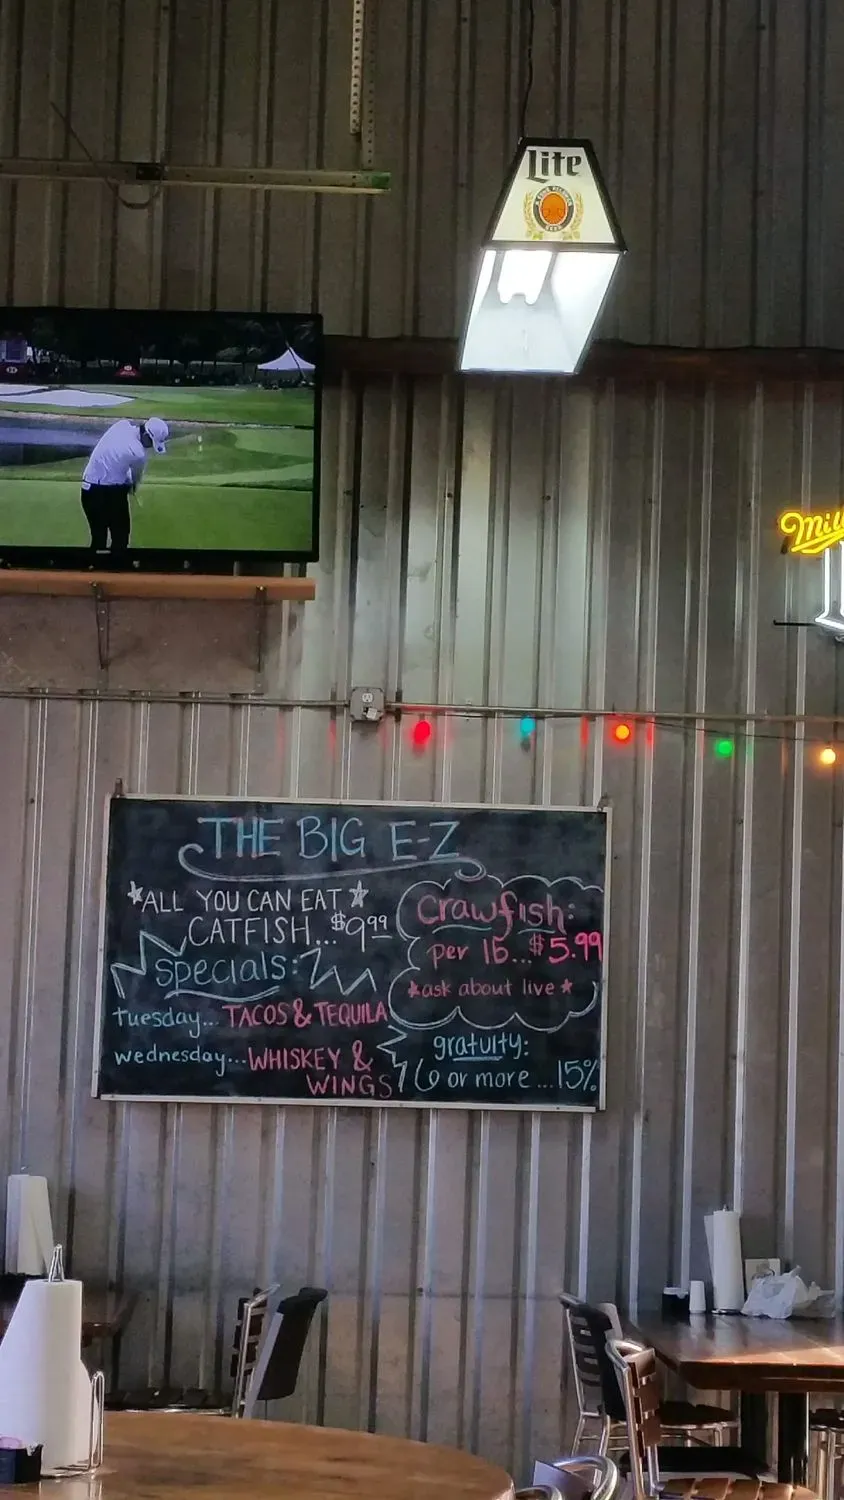 Lite
A FINE PILSNER
BEER
Mill
THE BIG E-Z
ALL YOU CAN EAT
CATFISH...$9.99
specials:
tuesday... TACOS & TEQUILA
wednesday...WHISKEY &
WINGS
Crawfish:
per lb...$5.99
*ask about live*
gratuity:
6 or more...15%